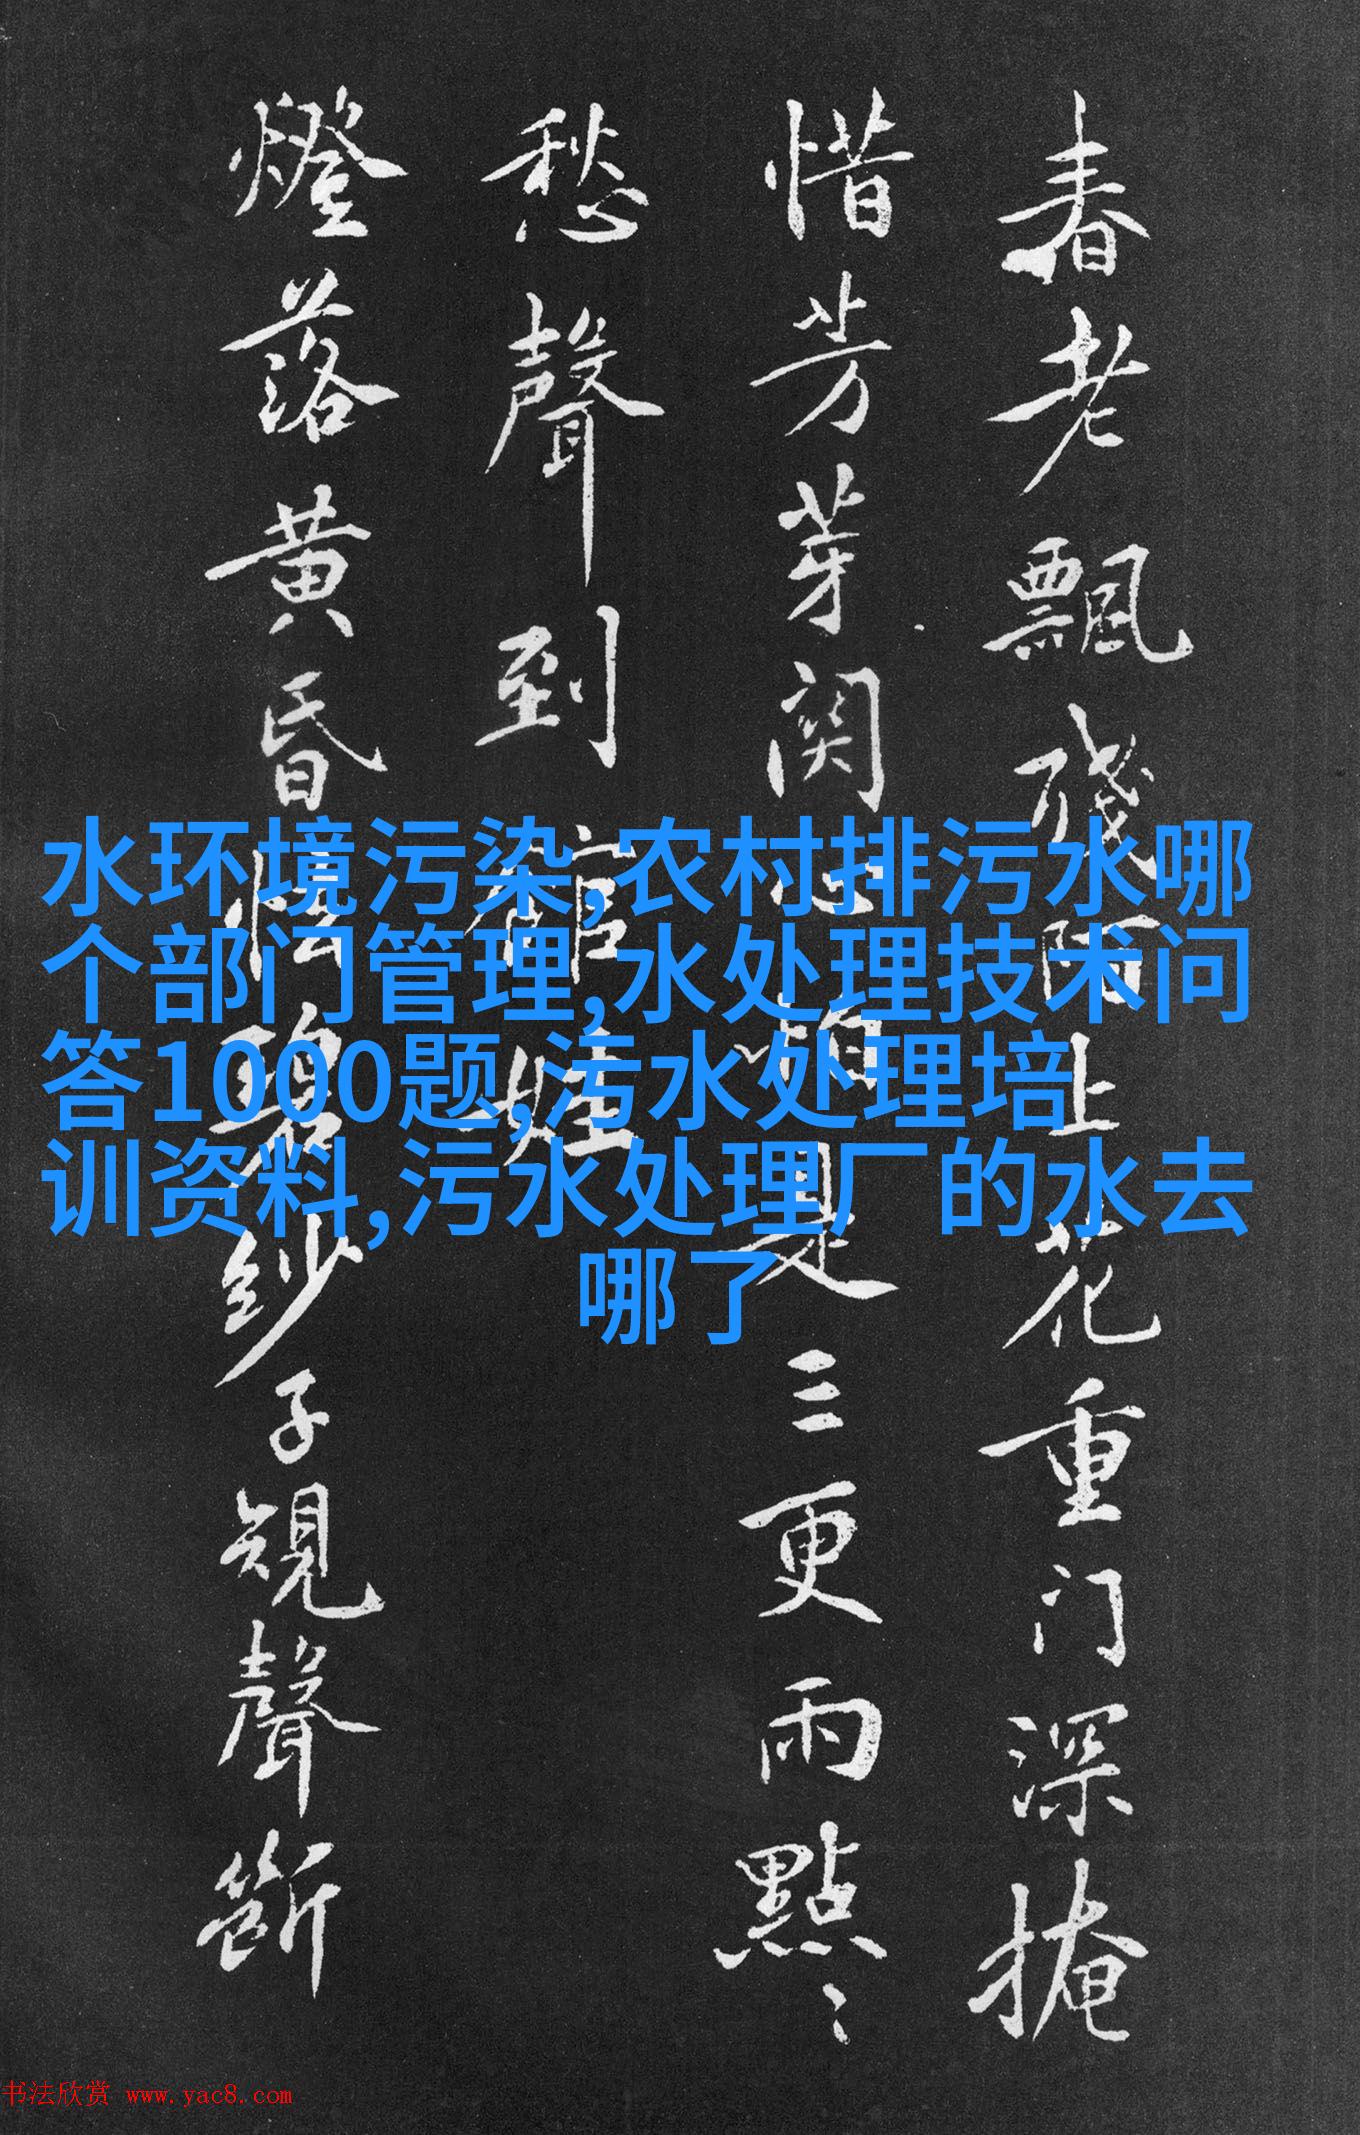 春老飄殘陌上花重门深掩
惜芳芽関心怕是三更雨點〻
愁聲到館娃
燈落黄昏碧紗子規聲斷
水环境污染,农村排污水哪
个部门管理,水处理技术问
答1000题,污水处理培
训资料,污水处理厂的水去
哪了
书法欣赏 www.yac8.com